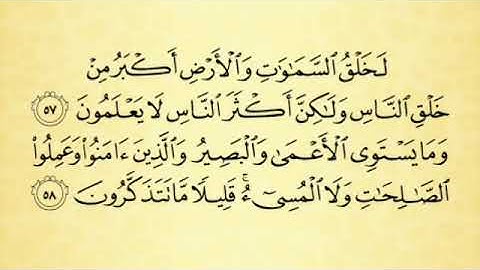 لَخَلْقُ السَّمَٰوَٰتِ وَالْأَرْضِ أَكْبَرُ مِنْ
خَلْقِ النَّاسِ وَلَٰكِنَّ أَكْثَرَ النَّاسِ لَا يَعْلَمُونَ ٥٧
وَمَا يَسْتَوِى الْأَعْمَىٰ وَالْبَصِيرُ وَالَّذِينَ ءَامَنُوا۟ وَعَمِلُوا۟
الصَّٰلِحَٰتِ وَلَا الْمُسِىٓءُ ۚ قَلِيلًا مَّا تَتَذَكَّرُونَ ٥٨